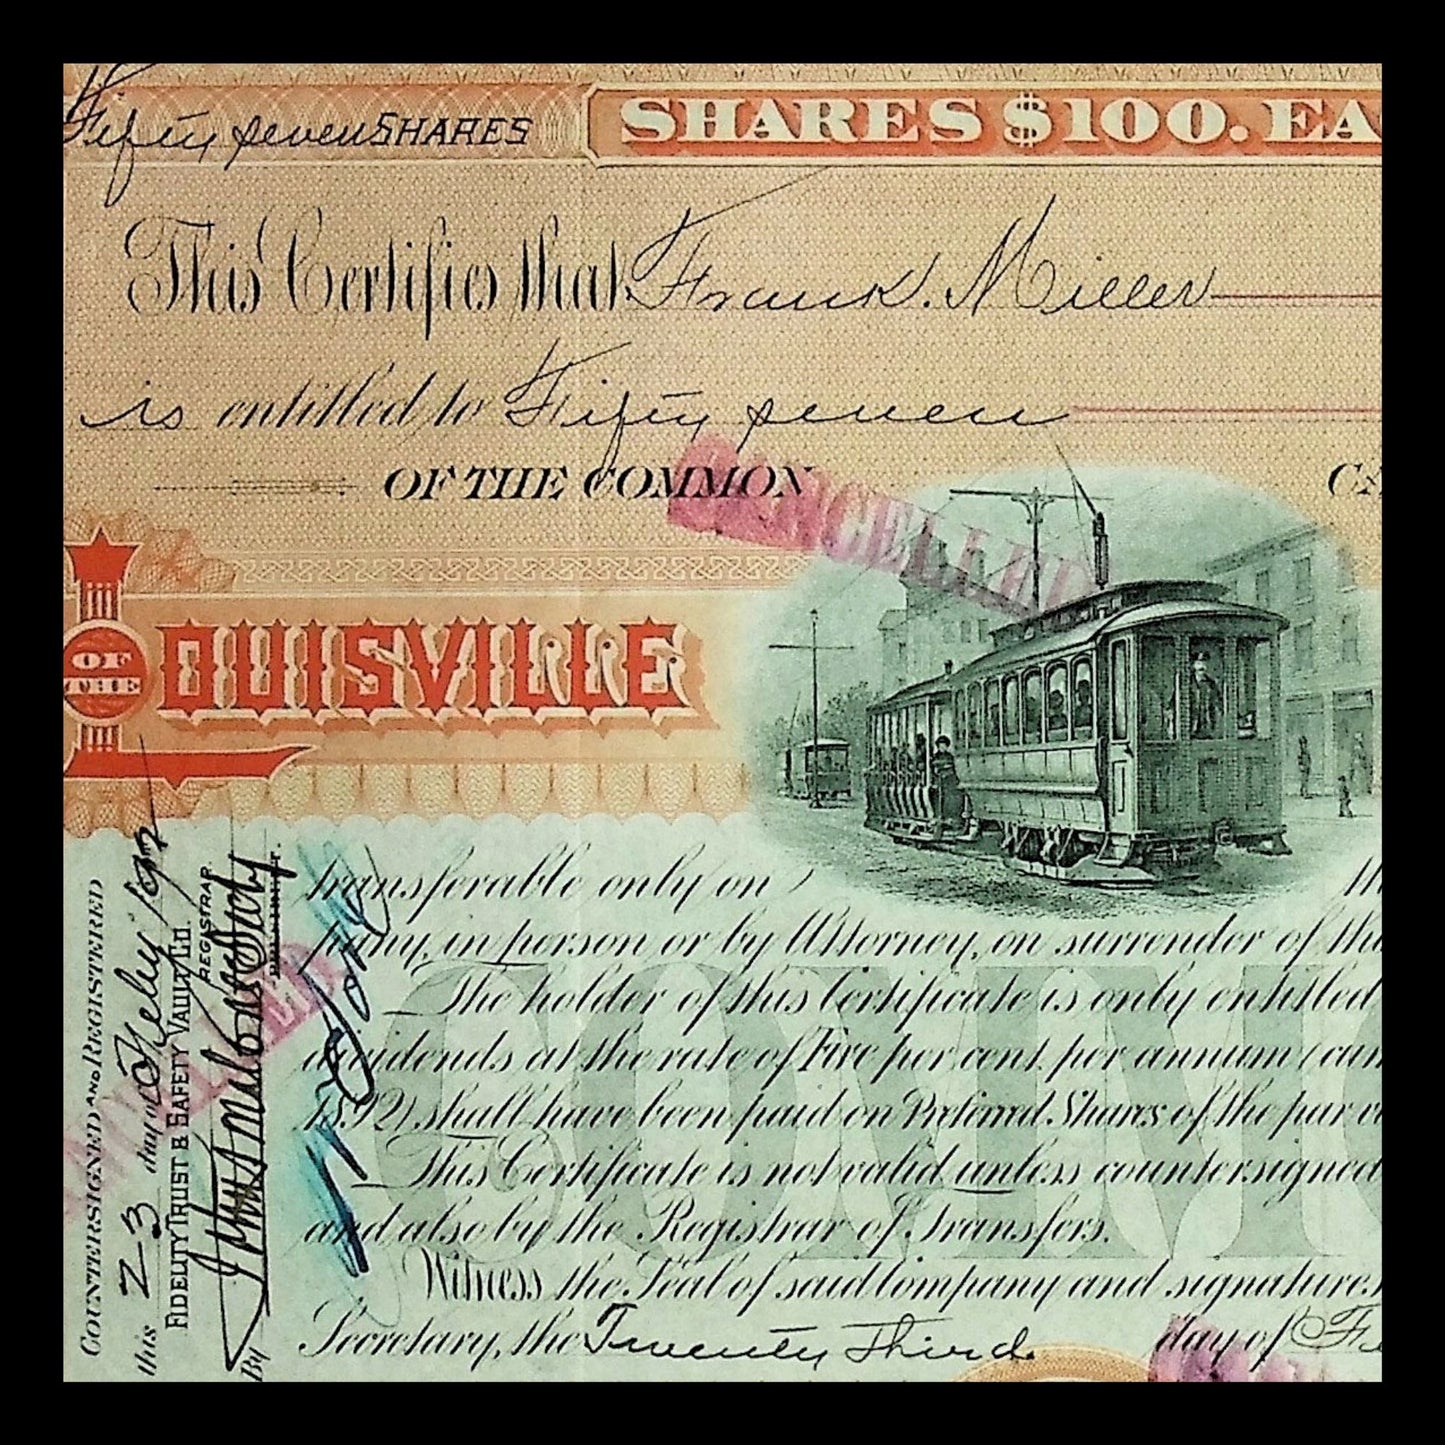 Fifty Seven SHARES
SHARES $100. EA
This Certifies that Frank. Miller
is entitled to Fifty seven
OF THE COMMON
CA
CANCELLED
OF
THE
LOUISVILLE
transferable only on
pany, in person or by Attorney, on surrender of th
The holder of this Certificate is only entitled
dividends at the rate of Five per cent. per annum (cum
1892) shall have been paid on Preferred Shares of the par v
This Certificate is not valid unless countersigned
and also by the Registrar of Transfers.
Witness the Seal of said Company and signatures
Secretary, the Twenty Third. day of Fe
COMM
COUNTERSIGNED AND REGISTERED
this 23 day of Feby
FIDELITY TRUST & SAFETY VAULT CO.
REGISTRAR
By